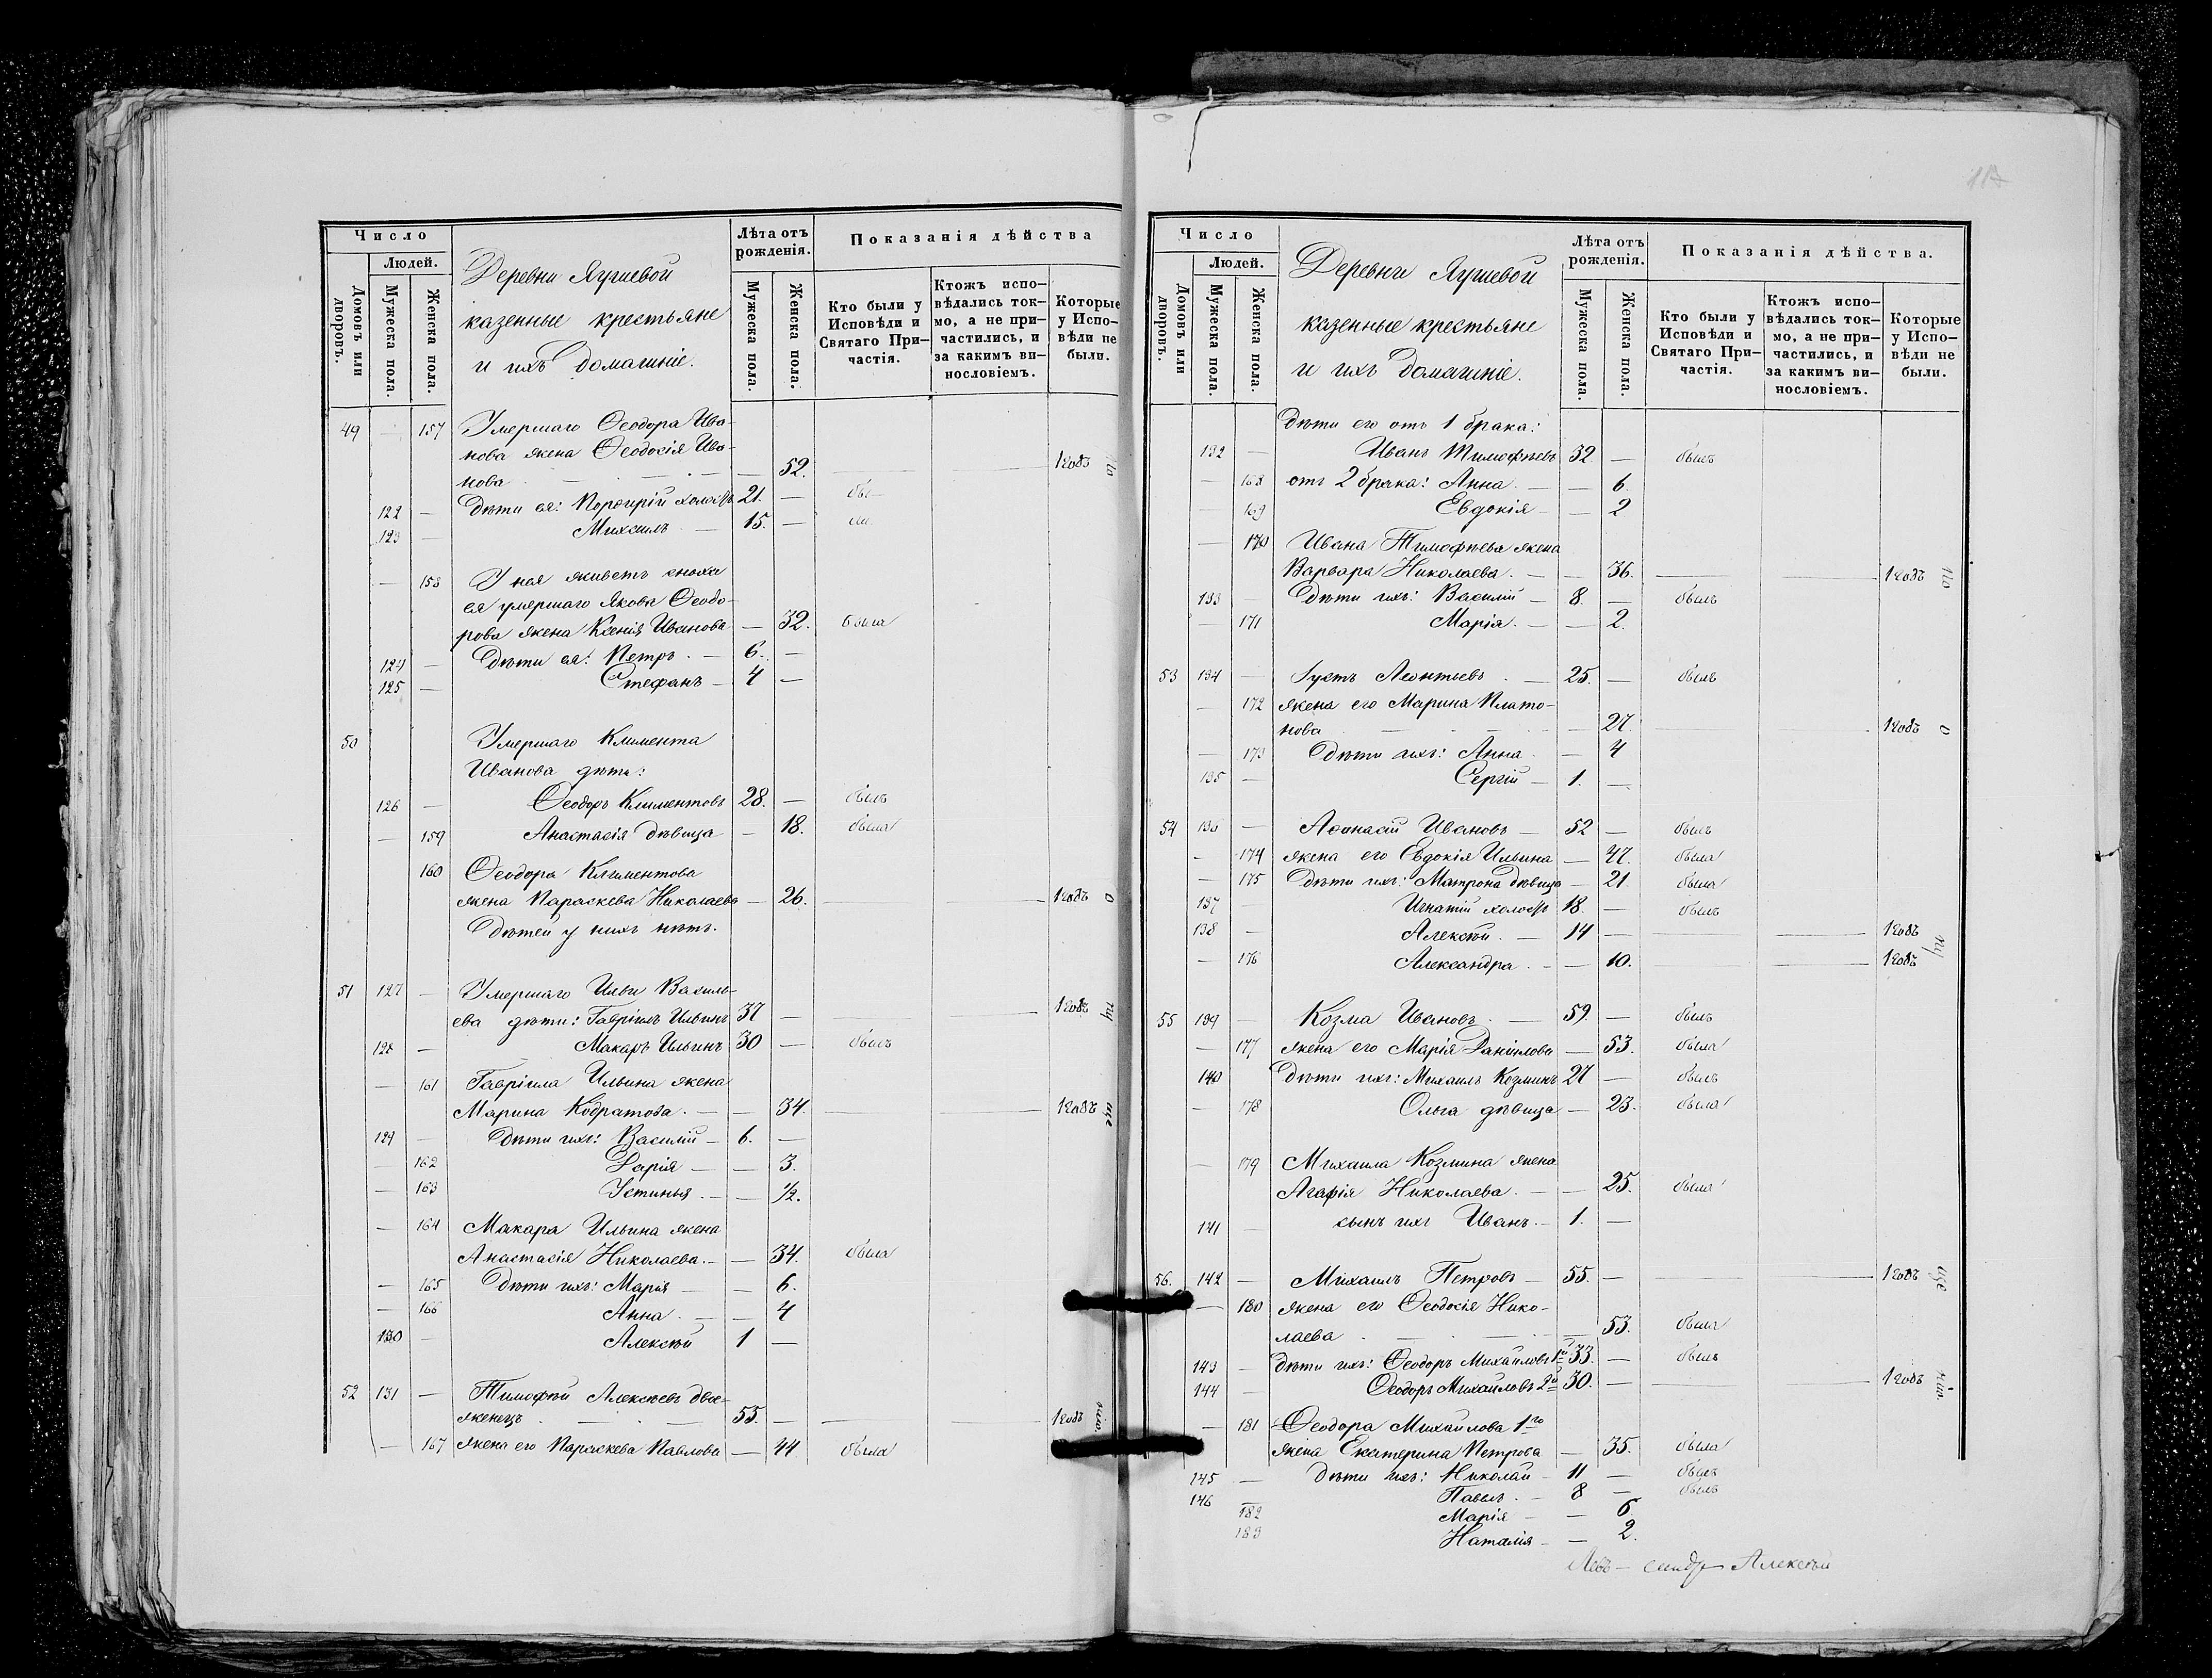 Число
Людей.
Домовъ или дворовъ.
Мужеска пола.
Женска пола.
Деревни Ягушевой
казенные крестьяне
и ихъ домашніе.
Лѣта отъ рожденія.
Мужеска пола.
Женска пола.
Показанія дѣйства
Кто были у Исповѣди и Святаго Причастія.
Ктожъ исповѣдались токмо, а не причастились, и за какимъ винословіемъ.
Которые у Исповѣди не были.
49 — 157 Умершаго Ѳеодора Ива-
нова жена Ѳеодосія Ива-
нова — — 52. — — 1 годъ по
122 — Дѣти ея: Порфирій холостъ 21. —
123 — Михаилъ — 15. —
— 158 У нея живетъ сноха
ея умершаго Якова Ѳеодо-
рова жена Ксенія Иванова — 32. была
124 — Дѣти ея: Петръ — 6. —
125 — Стефанъ — 4 —
50 Умершаго Климента
Иванова дѣти:
126 — Ѳеодоръ Климентовъ 28. — былъ
— 159 Анастасія дѣвица — 18. была
160 Ѳеодора Климентова
жена Параскева Николаева — 26. — — 1 годъ о
Дѣтей у нихъ нѣтъ.
51 127 — Умершаго Ильи Василь-
ева дѣти: Гавріилъ Ильинъ 37 — — — 1 годъ пу
128 — Макаръ Ильинъ 30 — былъ
— 161 Гавріила Ильина жена
Марина Кодратова. — — 34. — — 1 годъ ще
129 — Дѣти ихъ: Василій — 6. —
— 162 Дарія — — 3.
— 163 Устинья. — — 1/2.
— 164 Макара Ильина жена
Анастасія Николаева. — — 34. была
— 165 Дѣти ихъ: Марія — — 6.
— 166 Анна. — — 4
130 — Алексѣй 1 —
52 131 — Тимофѣй Алексѣевъ двое-
женецъ — — 55. — — — 1 годъ
— 167 жена его Параскева Павлова — 44. была
Число
Людей.
Домовъ или дворовъ.
Мужеска пола.
Женска пола.
Деревни Ягушевой
казенные крестьяне
и ихъ домашніе.
Лѣта отъ рожденія.
Мужеска пола.
Женска пола.
Показанія дѣйства.
Кто были у Исповѣди и Святаго Причастія.
Ктожъ исповѣдались токмо, а не причастились, и за какимъ винословіемъ.
Которые у Исповѣди не были.
Дѣти его отъ 1 брака:
132 — Иванъ Тимофѣевъ 32. — былъ
— 168 отъ 2 брака: Анна — — 6.
169 Евдокія — — 2
— 170 Ивана Тимофѣева жена
Варвара Николаева. — — 36. — — 1 годъ по
133 — Дѣти ихъ: Василій — 8. — былъ
— 171 Марія. — — 2.
53 134 — Іустъ Леонтьевъ — 25. — былъ
— 172 жена его Марина Плато-
нова — — 27. — — 1 годъ о
— 173 Дѣти ихъ: Анна — 4
135 — Сергій — 1. —
54 136 — Аѳонасій Ивановъ — 52 — былъ
— 174 жена его Евдокія Ильина — 47. была
— 175 Дѣти ихъ: Матрона дѣвица — 21 была
137 — Игнатій холостъ 18. — былъ
138 — Алексѣй. — 14 — — — 1 годъ
— 176 Александра. — — 10. — — 1 годъ пу
55 139 — Козма Ивановъ. — 59. — былъ
— 177 жена его Марія Даніилова — 53. была
140 Дѣти ихъ: Михаилъ Козминъ 27 — былъ
— 178 Ольга дѣвица — 23. была
— 179 Михаила Козмина жена
Агафія Николаева. — — 25. была
141 — сынъ ихъ Иванъ. — 1. —
56. 142 — Михаилъ Петровъ — 55. — — — 1 годъ ще
— 180 жена его Ѳеодосія Нико-
лаева — — 53. была
143 — Дѣти ихъ: Ѳеодоръ Михайловъ 1й 33. — былъ
144 — Ѳеодоръ Михайловъ 2й 30. — — — 1 годъ
— 181 Ѳеодора Михайлова 1го
жена Екатерина Петрова — 35. была
145 — Дѣти ихъ: Николай — 11 — былъ
146 Павелъ. — 8 — былъ
182 Марія — — 6
183 Наталія — — 2.
Алексѣй